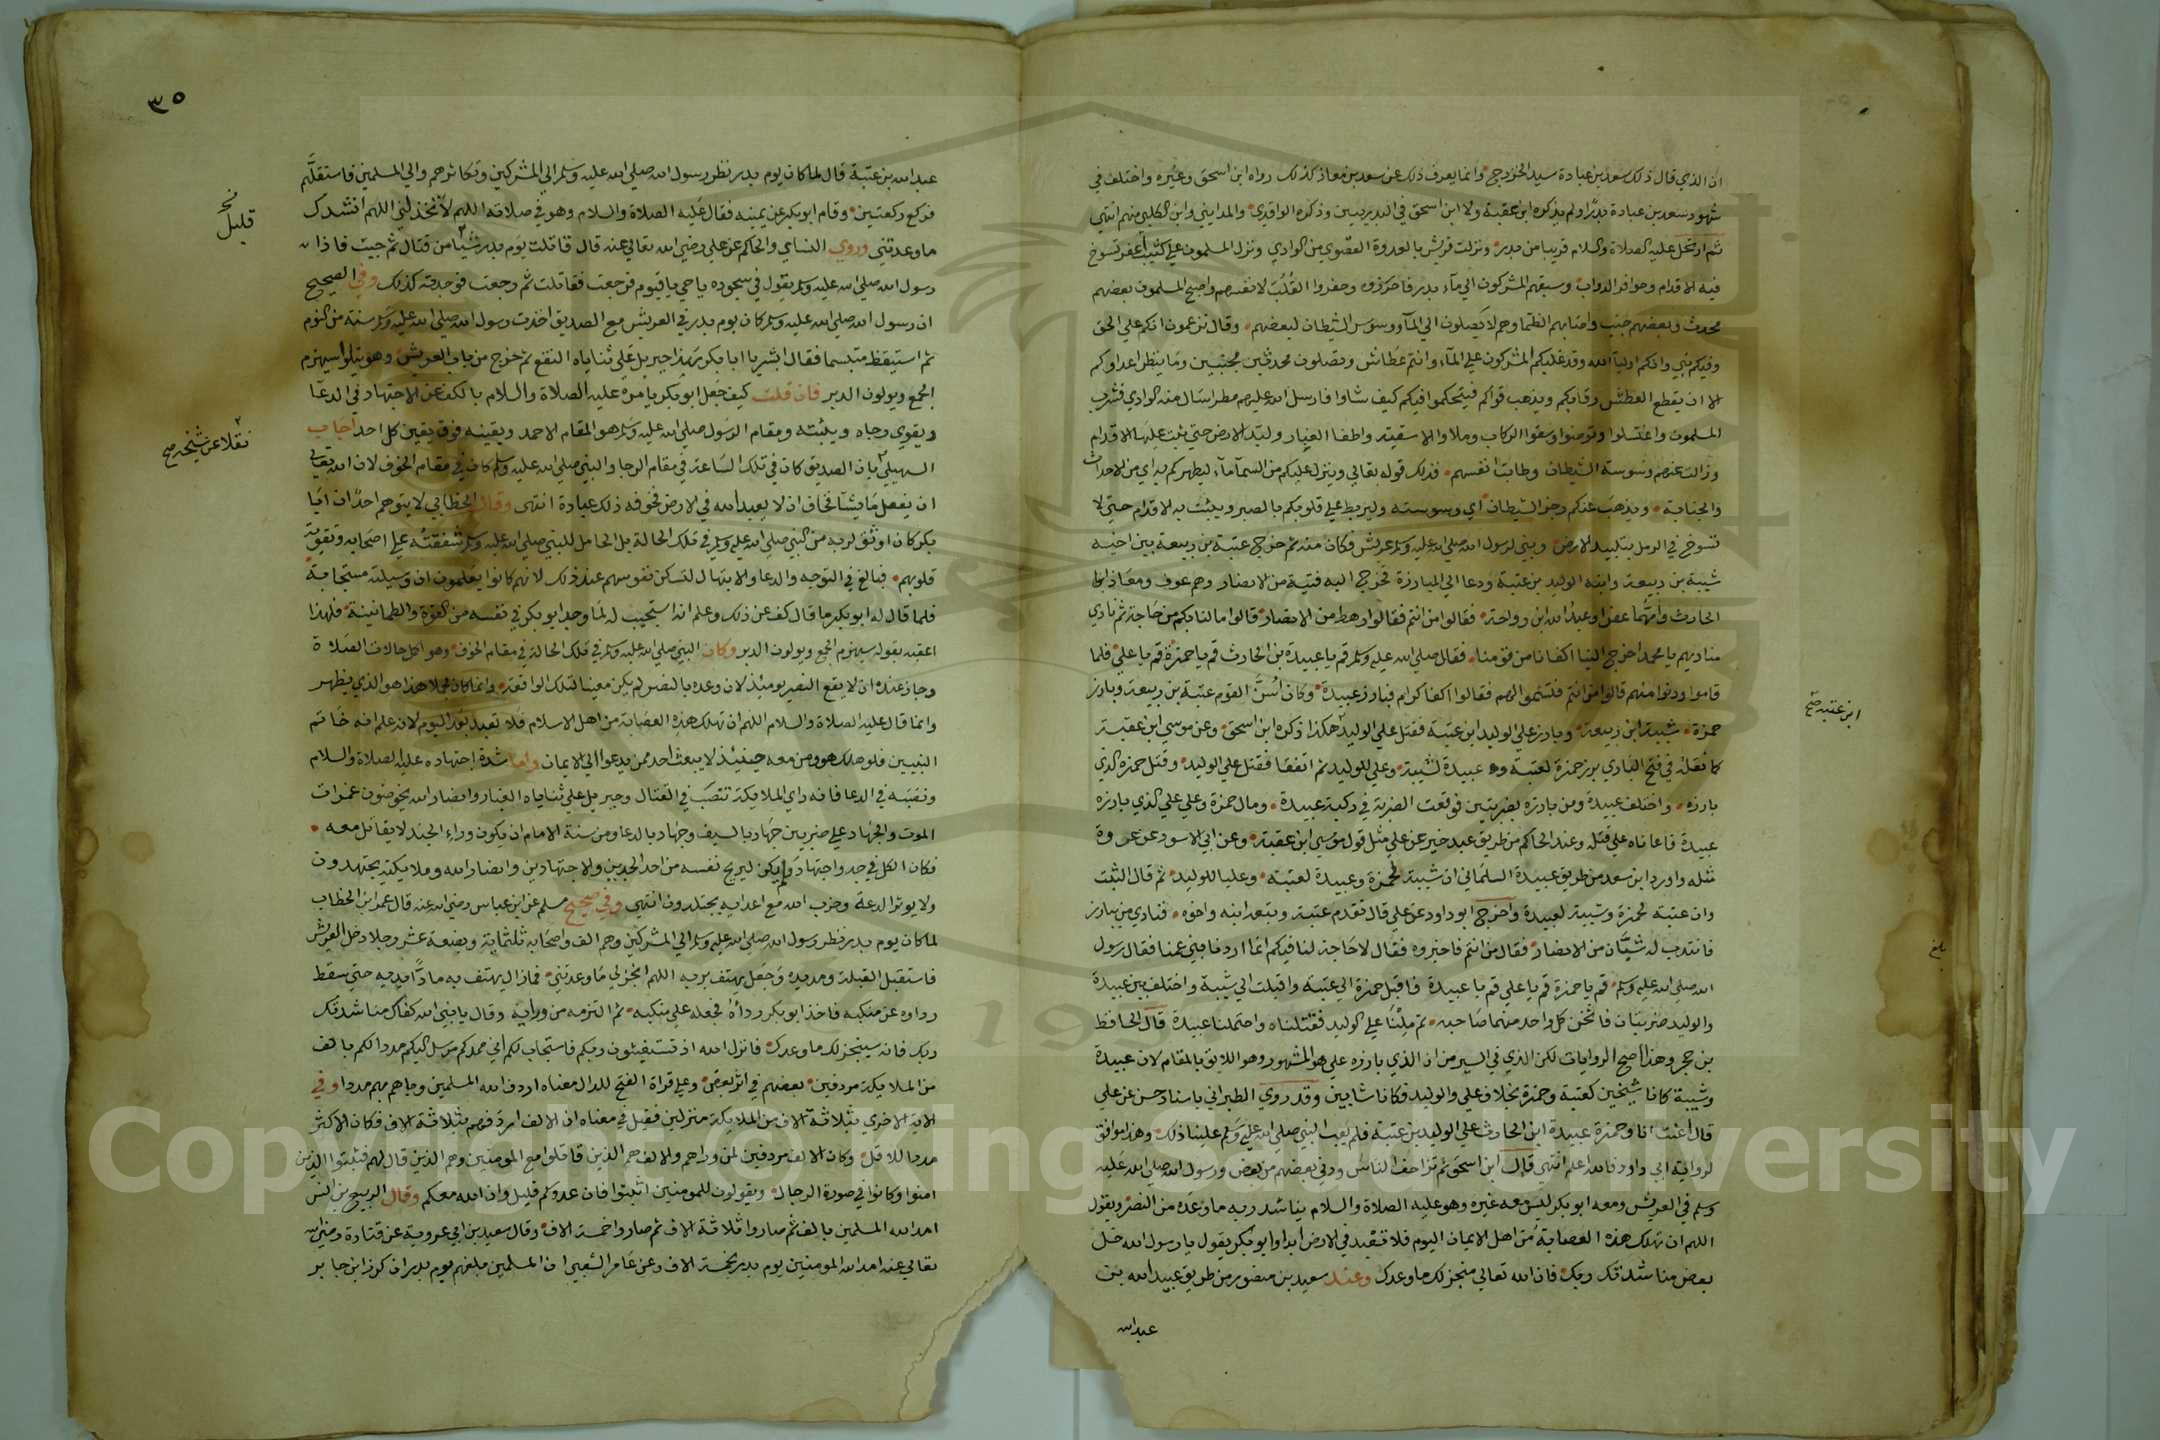 ان الذي قال ذلك سعد بن عبادة سيد الخزرج وانما يعرف ذلك عن سعد بن معاذ كذلك رواه ابن اسحق وغيره واختلف في
شهود سعد بن عبادة بدرا ولم يذكره ابن عقبة ولا ابن اسحق في البدريين وذكره الواقدي والمدايني وابن الكلبي منهم انتهى
ثم ارتحل عليه الصلاة والسلام قريبا من بدر ونزلت قريش بالعدوة القصوي من الوادي ونزل المسلمون علي كثيب اعفر تسوخ
فيه الاقدام وحوافر الدواب وسبقهم المشركون الي مآء بدر فاحرزوه وحفروا القلب لانفسهم واصبح المسلمون بعضهم
محدث وبعضهم جنب واصابهم الظما وهم لا يصلون الي المآء ووسوس الشيطان لبعضهم وقال تزعمون انكم علي الحق
وفيكم نبي وانكم اوليآ الله وقد غلبكم المشركون علي المآء وانتم عطاش وتصلون محدثين مجنبين وما ينظر اعداوكم
الا ان يقطع العطش رقابكم ويذهب قواكم فيتحكموا فيكم كيف شاوا فارسل الله عليهم مطرا سال منه الوادي فشرب
المسلمون واغتسلوا وتوضوا وسقوا الركاب وملاوا الاسقية واطفا الغبار ولبد الارض حتي ثبت عليها الاقدام
وزالت عنهم وسوسة الشيطان وطابت انفسهم فذلك قوله تعالي وينزل عليكم من السمآ مآء ليطهركم به اي من الاحداث
والجنابة ويذهب عنكم رجز الشيطان اي وسوسته وليربط علي قلوبكم بالصبر ويثبت به الاقدام حتي لا
تسوخ في الرمل بتلبيد الارض وبني لرسول الله صلي الله عليه وسلم عريش فكان منه ثم خرج عتبة بن ربيعة بين اخيه
شيبة بن ربيعة وابنه الوليد بن عتبة ودعا الي المبارزة فخرج اليه فتية من الانصار وهم عوف ومعاذ ابنا
الحارث وامهما عفرا وعبد الله ابن رواحة فقالوا من انتم فقالوا رهط من الانصار قالوا ما لنا بكم من حاجة ثم نادي
مناديهم يا محمد اخرج الينا اكفانا من قومنا فقال صلي الله عليه وسلم قم يا عبيدة بن الحارث قم يا حمزة قم يا علي فلما
قاموا ودنوا منهم قالوا من انتم فتسموا لهم فقالوا اكفا كرام فبارز عبيدة وكان اسن القوم عتبة بن ربيعة وبارز
حمزة شيبة ابن ربيعة وبارز علي الوليد ابن عتبة فقتل علي الوليد هكذا ذكره ابن اسحق وعن موسي ابن عقبة
كما نقله في فتح الباري برز حمزة لعتبة وعبيدة لشيبة وعلي للوليد ثم اتفقا فقتل علي الوليد وقتل حمزة الذي
بارزه واختلف عبيدة ومن بارزه بضربتين فوقعت الضربة في ركبة عبيدة ومال حمزة وعلي علي الذي بارزه
عبيدة فاعاناه علي قتله وعند الحاكم من طريق عبد خير عن علي مثل قول موسي ابن عقبة وعن ابي الاسود عن عروة
مثله واورد ابن سعد من طريق عبيدة السلماني ان شيبة لحمزة وعبيدة لعتبة وعليا للوليد ثم قال الثبت
وان عتبة لحمزة وشيبة لعبيدة واخرج ابو داود عن علي قال تقدم عتبة وتبعه ابنه واخوه فنادي من يبارز
فانتدب له شبان من الانصار فقال من انتم فاخبروه فقال لا حاجة لنا فيكم انما اردنا بني عمنا فقال رسول
الله صلي الله عليه وسلم قم يا حمزة قم يا علي قم يا عبيدة فاقبل حمزة الي عتبة واقبلت الي شيبة واختلف بين عبيدة
والوليد ضربتان فاثخن كل واحد منهما صاحبه ثم ملنا علي الوليد فقتلناه واحتملنا عبيدة قال الحافظ
بن حجر وهذا اصح الروايات لكن الذي في السير من ان الذي بارزه علي هو المشهور وهو اللائق بالمقام لان عبيدة
وشيبة كانا شيخين كعتبة وحمزة بخلاف علي والوليد فكانا شابين وقد روي الطبراني باسناد حسن عن علي
قال اعنت انا وحمزة عبيدة ابن الحارث علي الوليد بن عتبة فلم يعب النبي صلي الله عليه وسلم علينا ذلك وهذا موافق
لرواية ابي داود فالله اعلم انتهي قال ابن اسحق ثم تزاحف الناس ودني بعضهم من بعض ورسول الله صلي الله عليه
وسلم في العريش ومعه ابو بكر ليس معه غيره وهو عليه الصلاة والسلام يناشد ربه ما وعده من النصر ويقول
اللهم ان تهلك هذه العصابة من اهل الايمان اليوم فلا تعبد في الارض ابدا وابو بكر يقول يا رسول الله خل
بعض مناشدتك ربك فان الله تعالي منجز لك ما وعدك وعند سعيد بن منصور من طريق عبيد الله بن
عبد الله
ابن عتبه صح
بلغ
٣٥
عبد الله بن عتبة قال لما كان يوم بدر نظر رسول الله صلي الله عليه وسلم الي المشركين وتكاثرهم والي المسلمين فاستقلهم
فركع ركعتين وقام ابو بكر عن يمينه فقال عليه الصلاة والسلام وهو في صلاته اللهم لا تخذلني اللهم انشدك
ما وعدتني وروي النساي والحاكم عن علي رضي الله تعالي عنه قال قاتلت يوم بدر شيا من قتال ثم جيت فاذا
رسول الله صلي الله عليه وسلم يقول في سجوده يا حي يا قيوم فرجعت فقاتلت ثم رجعت فوجدته كذلك وفي الصحيح
ان رسول الله صلي الله عليه وسلم كان يوم بدر في العريش مع الصديق اخذت رسول الله صلي الله عليه وسلم سنة من النوم
ثم استيقظ متبسما فقال ابشر يا ابا بكر هذا جبريل علي ثناياه النقع ثم خرج من باب العريش وهو يتلوا سيهزم
الجمع ويولون الدبر فان قلت كيف جعل ابو بكر يامره عليه الصلاة والسلام بالكف عن الاجتهاد في الدعا
ويقوي رجاه ويثبته ومقام الرسول صلي الله عليه وسلم هو المقام الاحمد ويقينه فوق يقين كل احد اجاب
السهيلي بان الصديق كان في تلك الساعة في مقام الرجا والنبي صلي الله عليه وسلم كان في مقام الخوف لان الله تعالي
ان يفعل ما يشا فخاف ان لا يعبد الله في الارض فخوفه ذلك عبادة انتهى وقال الخطابي لا يتوهم احد ان ابا
بكر كان اوثق لربه من النبي صلي الله عليه وسلم في تلك الحالة بل الحامل للنبي صلي الله عليه وسلم شفقته علي اصحابه وتقوية
قلوبهم فبالغ في التوجه والدعا والابتهال لتسكن نفوسهم عند ذلك لانهم كانوا يعلمون ان وسيلته مستجابة
فلما قال له ابو بكر ما قال كف عن ذلك وعلم انه استجيب له لما وجد ابو بكر في نفسه من القوة والطمانينة فلهذا
اعقبه بقوله سيهزم الجمع ويولون الدبر وكان النبي صلي الله عليه وسلم في تلك الحالة في مقام الخوف وهو اكمل حالات الصلاة
وجاز عنده ان لا يقع النصر يومئذ لان وعده بالنصر لم يكن معينا لتلك الواقعة وانما كان مجملا هذا هو الذي يظهر
وانما قال عليه الصلاة والسلام اللهم ان تهلك هذه العصابة من اهل الاسلام فلا تعبد بعد اليوم لانه علم انه خاتم
النبيين فلو هلك هو ومن معه حينئذ لا يبعث احد ممن يدعوا الي الايمان واما شدة اجتهاده عليه الصلاة والسلام
ونصبه في الدعا فانه راي الملايكة تنصب في القتال وجبريل علي ثناياه الغبار وانصار الله يخوضون غمرات
الموت والجهاد علي ضربين جهاد بالسيف وجهاد بالدعا ومن سنة الامام ان يكون وراء الجند لا يقاتل معه
فكان الكل في جد واجتهاد ولم يكن ليريح نفسه من احد الجدين والاجتهادين وانصار الله وملايكته يجتهدون
ولا يوثر الدعة وحزب الله مع اعدايه يجتلدون انتهى وفي صحيح مسلم عن ابن عباس رضي الله عنه قال عمر ابن الخطاب
لما كان يوم بدر نظر رسول الله صلي الله عليه وسلم الي المشركين وهم الف واصحابه ثلثماية وبضعة عشر رجلا دخل العريش
فاستقبل القبلة ومد يديه وجعل يهتف بربه اللهم انجز لي ما وعدتني فمازال يهتف بربه مادا يديه حتي سقط
رداوه عن منكبه فاخذ ابو بكر رداءه فجعله علي منكبه ثم التزمه من ورايه وقال يا نبي الله كفاك مناشدتك
ربك فانه سينجز لك ما وعدك فانزل الله اذ تستغيثون ربكم فاستجاب لكم اني ممدكم مرسل اليكم مددا لكم بالف
من الملايكة مردفين بعضهم في اثر بعض وعلي قراة الفتح للدال معناه اردف الله المسلمين وجاهم بهم مددا وفي
الاية الاخري بثلاثة الاف من الملايكة منزلين فقيل في معناه ان الالف اردفهم بثلاثة الاف فكان الاكثر
مددا للاقل وكان الالف مردفين لمن وراهم والالف هم الذين قاتلوا مع المومنين وهم الذين قال لهم فثبتوا الذين
امنوا وكانوا في صورة الرجال ويقولون للمومنين اثبتوا فان عدوكم قليل وان الله معكم وقال الربيع بن انس
امد الله المسلمين بالف ثم صاروا ثلاثة الاف ثم صاروا خمسة الاف وقال سعيد بن ابي عروبة عن قتادة رضي الله
تعالي عنه امد الله المومنين يوم بدر بخمسة الاف وعن عامر الشعبي ان المسلمين بلغهم يوم بدر ان كرز ابن جابر
قليل
نقلا عن شيخه صح
Copyright © King Saud University